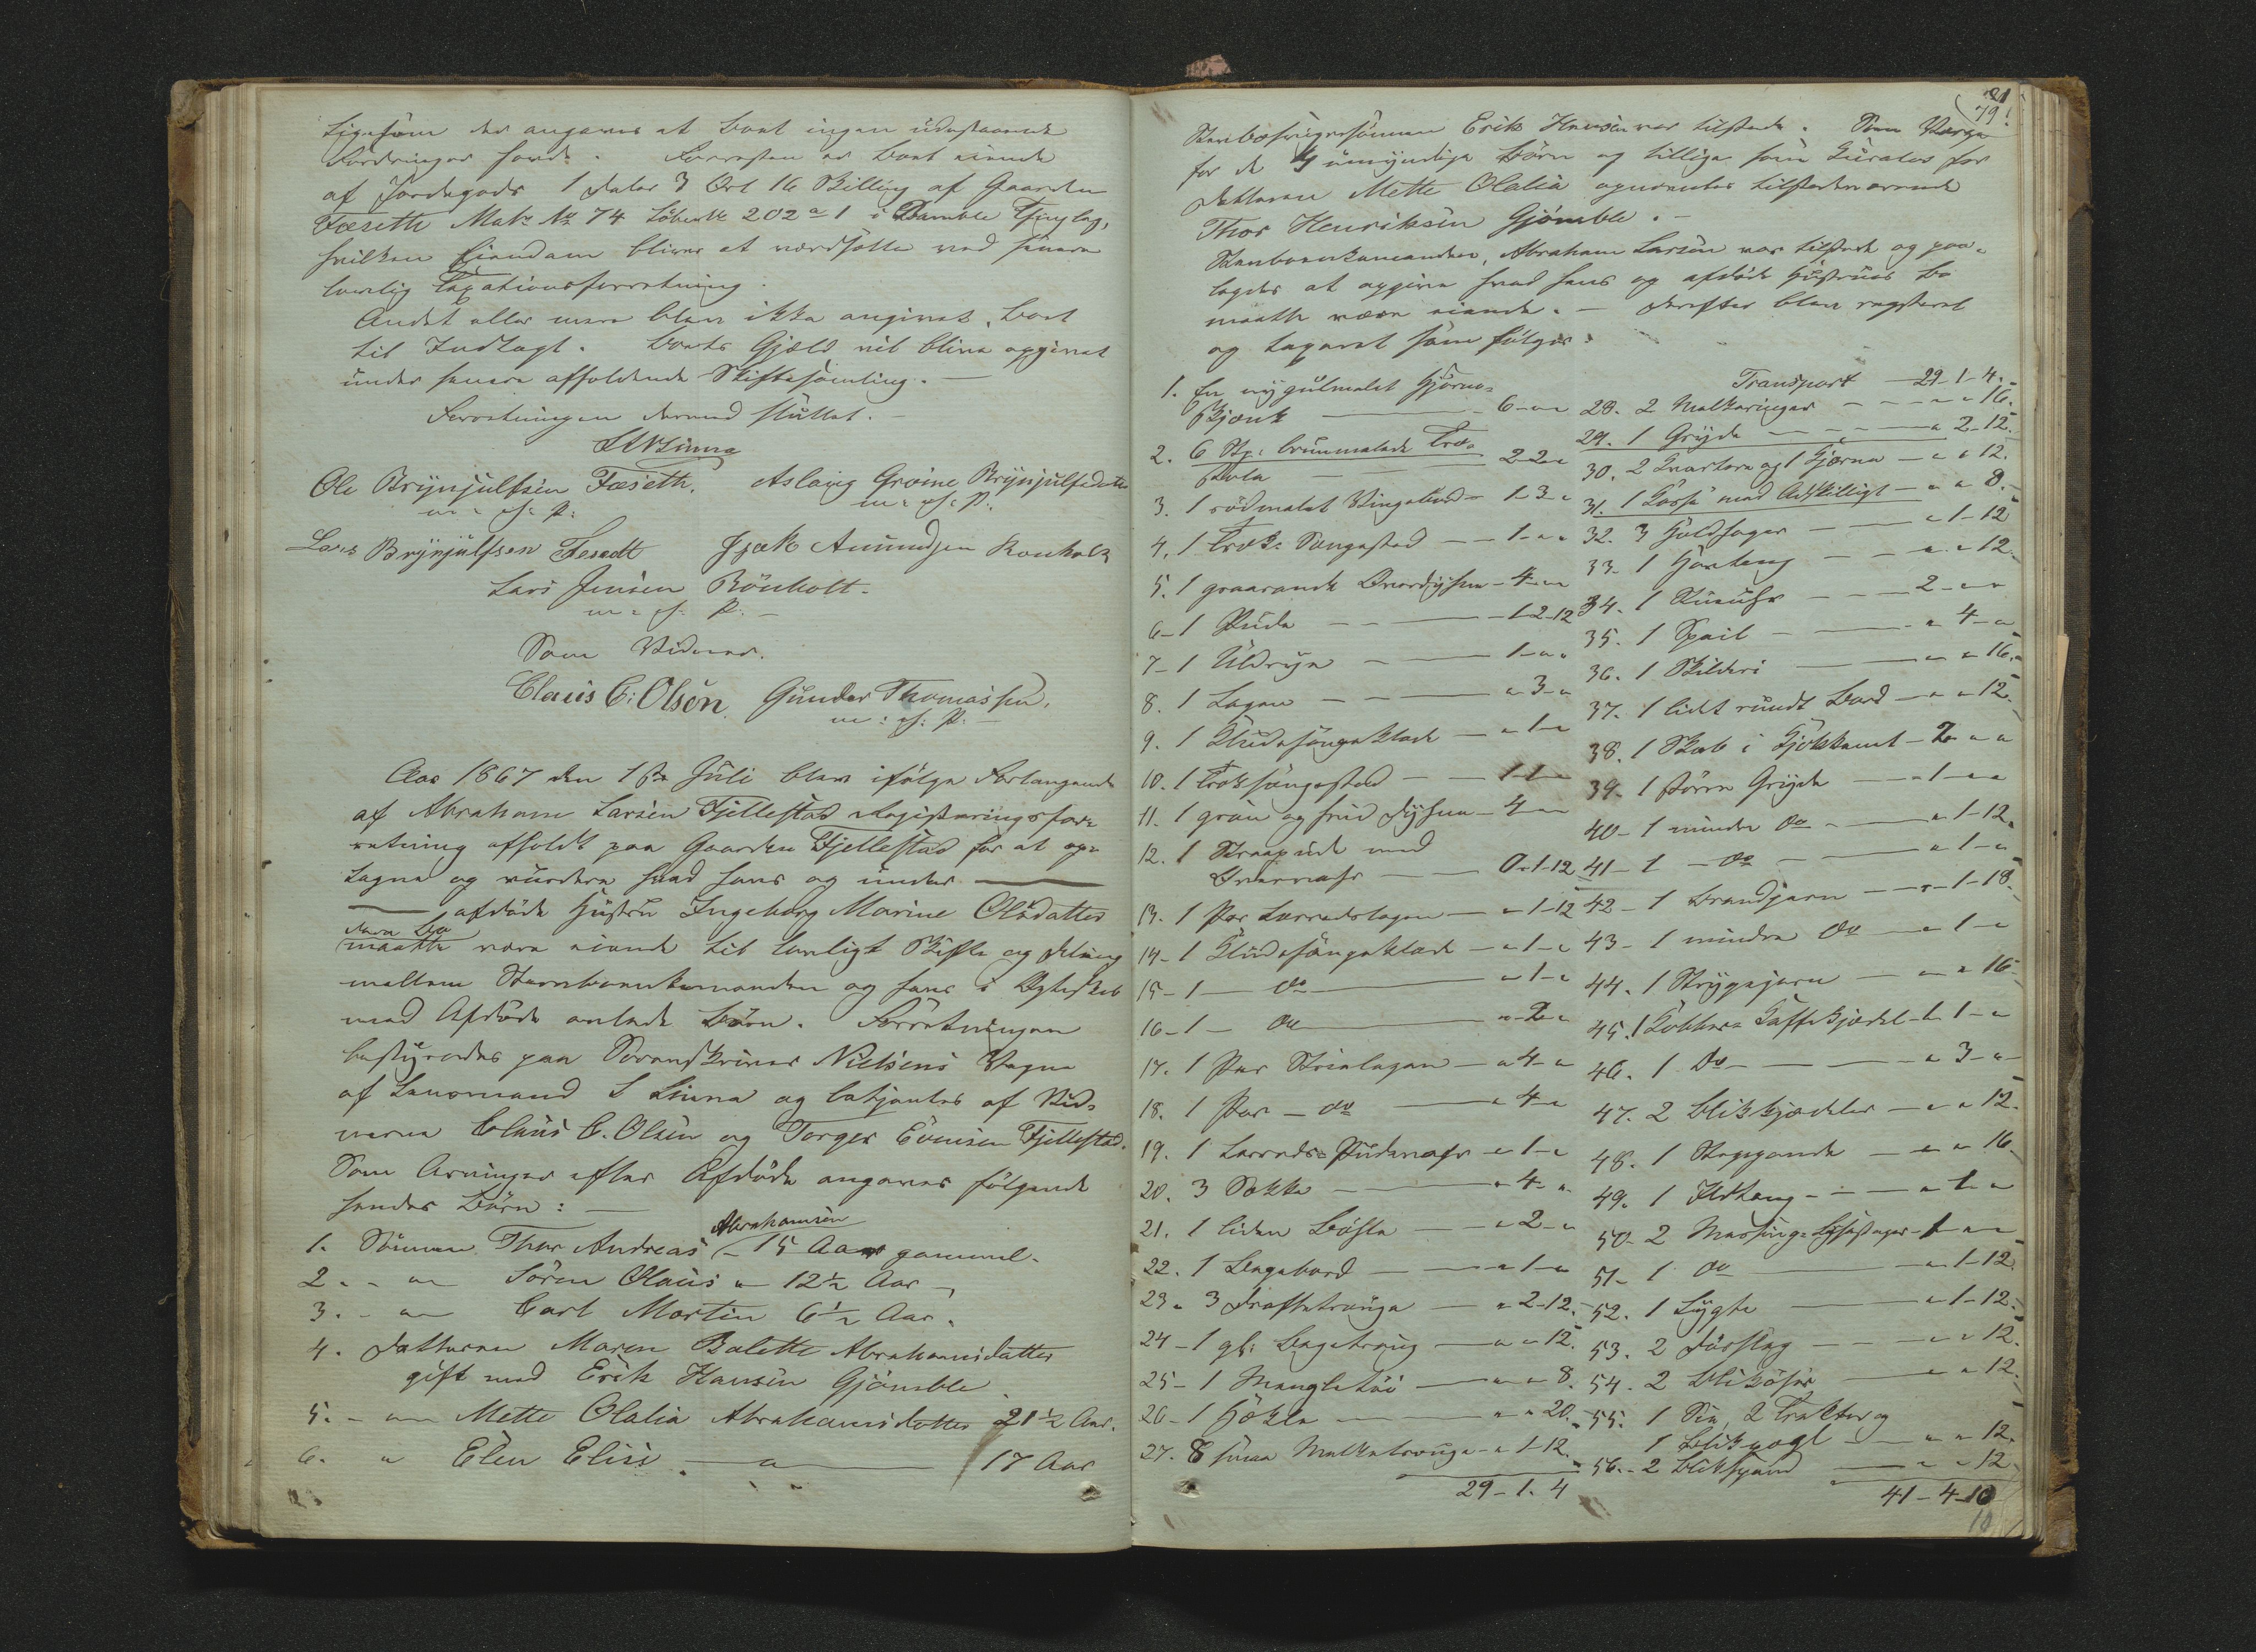 Ligesom der angaves at Boet ingen udestaaende
Fordringer havde. Forresten er Boet eiende
af Jordegods 1 Daler 3 Ort 16 Skilling af Gaarden
Fæseth Matr No 74 Løbe No 202 a 1 i Bamble Thinglag,
hvilken Eiendom bliver at værdsætte ved senere
lovlig Taxationsforretning.
Andet eller mere blev ikke angivet Boet
til Indtægt. Boets Gjæld vil blive opgivet
under senere afholdende Skiftesamling. —
Forretningen dermed sluttet.
Ole Brynjulfsen Fæseth. Aslaug Groine Brynjulfsdatter
m: f: P: m: f: P:
Lars Brynjulfsen Feseth Isak Amundsen Ronholt
Lars Jensen Rönholt.
m: f: P:
Som Vidner.
Claus C: Olsen. Gunder Thomassen.
m: f: P:
Aar 1867 den 1ste Juli blev ifølge Forlangende
af Abraham Larsen Fjellestad Registreringsfor-
retning afholdt paa Gaarden Fjellestad for at op-
tegne og vurdere hvad hans og under
afdøde Hustru Ingeborg Marine Olsdatter
deres Bo
maatte være eiende til lovligt Skifte og Deling
mellem Stervboenkemanden og hans i Ægteskab
med Afdøde avlede Børn. Forretningen
bestyredes paa Sorenskriver Nielsens Vegne
af Lensmand S Linna og betjentes af Vid-
nerne Claus C. Olsen og Torger Evensen Fjellestad.
Som Arvinger efter Afdøde angaves følgende
hendes Børn: —
1. Sønnen Thor Andreas Abrahamsen 15 Aar gammel.
2. " Sören Olaus " 12½ Aar
3. " Carl Martin 6½ Aar.
4. Datteren Maren Bolette Abrahamsdatter
gift med Erik Hansen Gjömble
5. " Mette Olalia Abrahamsdatter 21½ Aar.
6. " Elen Elise " 17 Aar
79
Erik Hansen var tilstede. Som Værge
for de 4 umyndige Børn og tillige som Kurator for
Datteren Mette Olalia opnævntes tilstedeværende
Thor Henriksen Gjömble. —
Stervboenkemanden, Abraham Larsen var tilstede og paa-
lagdes at opgive hvad hans og afdøde Hustrues Bo
maatte være eiende. — Derefter blev registeret
og taxeret som følger:
1. En ny gulmalet Hjørne-
skjænk — 6 - " "
2. 6 Stk: brunmalede Træ-
stole — 2-2-"
3. 1 rødmalet Vingebord — 1-3-"
4. 1 Træk-Sengested — 1-"-"
5. 1 graarandet Overdyne — 4-"-"
6. 1 Pude — 1-2-12
7. 1 Uldrye — 1-"-"
8. 1 Lagen — "-3-"
9. 1 Kludesengeklæde — "-1-"
10. 1 Træksengested — 1-1-"
11. 1 grøn og hvid Dyne — 4-"-"
12. 1 Hovedpude med
Overvahr — 0-1-12
13. 1 Par Lærredslagen — "-1-12
14. 1 Kludesengeklæde — "-1-"
15. 1 — do — "-1-"
16. 1 — do — "-2-"
17. 1 Par Strielagen — "-4-"
18. 1 Par — do — "-4-"
19. 1 Lærreds-Pudevahr — "-1-"
20. 3 Sække — "-4-"
21. 1 liden Bøste — "-2-"
22. 1 Bagebord — "-1-"
23. 3 Drøftetrouge — "-2-12.
24. 1 gl: Bagetroug — "-"-12.
25. 1 Mangletræ — "-"-8.
26. 1 Hekle — "-"-20.
27. 8 smaa Melketrouge — "-1-12.
29-1-4
Transport — 29-1-4.
28. 2 Melkeringer — "-"-16.
29. 1 Gryde — "-2-12.
30. 2 Qvarter og 1 Kjerne — "-"-12.
31. 1 Kasse med Adskilligt — "-"-8.
32. 3 Høldsager — "-1-12
33. 1 — "-"-12.
34. 1 Stueuhr — 2-"-"
35. 1 Speil — "-4-"
36. 1 Skilderi — "-"-16.
37. 1 lidet rundt Bord — "-"-12.
38. 1 Skab i Kjøkkenet — 2-"-"
39. 1 større Gryde — 1-"-"
40. 1 mindre do — "-1-12.
41. 1 — do — "-1-"
42. 1 Brandjern — "-1-18.
43. 1 mindre do — "-1-"
44. 1 Strygejern — "-"-16
45. 1 Kobber-Kaffekjedel — 1-1-"
46. 1 do — "-3-"
47. 2 Blikkjedeler — "-"-12.
48. 1 Stegepande — "-"-16.
49. 1 Ildtang — "-1-"
50. 2 Messing-Lysestager — 1-"-"
51. 1 do — "-1-12.
52. 1 Lygte — "-1-12.
53. 2 Dørslag — "-"-12.
54. 2 Blikøser — "-"-12.
55. 1 Sie, 2 Trakter og
1 — "-"-12.
56. 2 Blikspand — "-"-12.
41-4-10